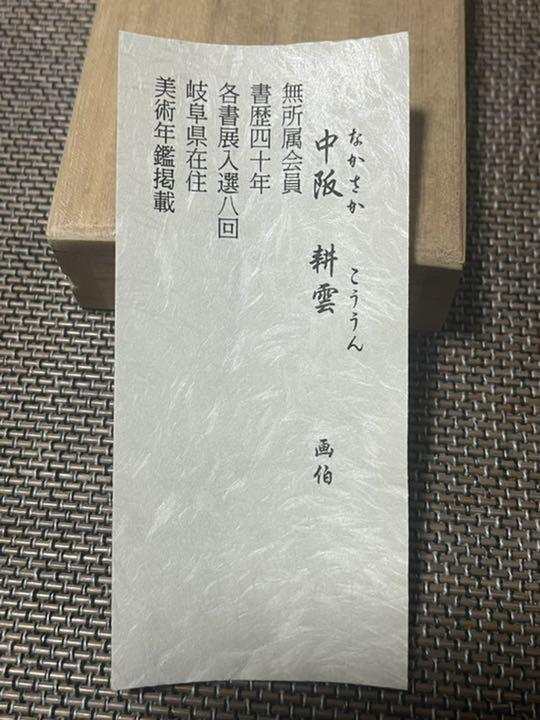 なかさか こううん
中阪 耕雲 画伯
無所属会員
書歴四十年
各書展入選八回
岐阜県在住
美術年鑑掲載